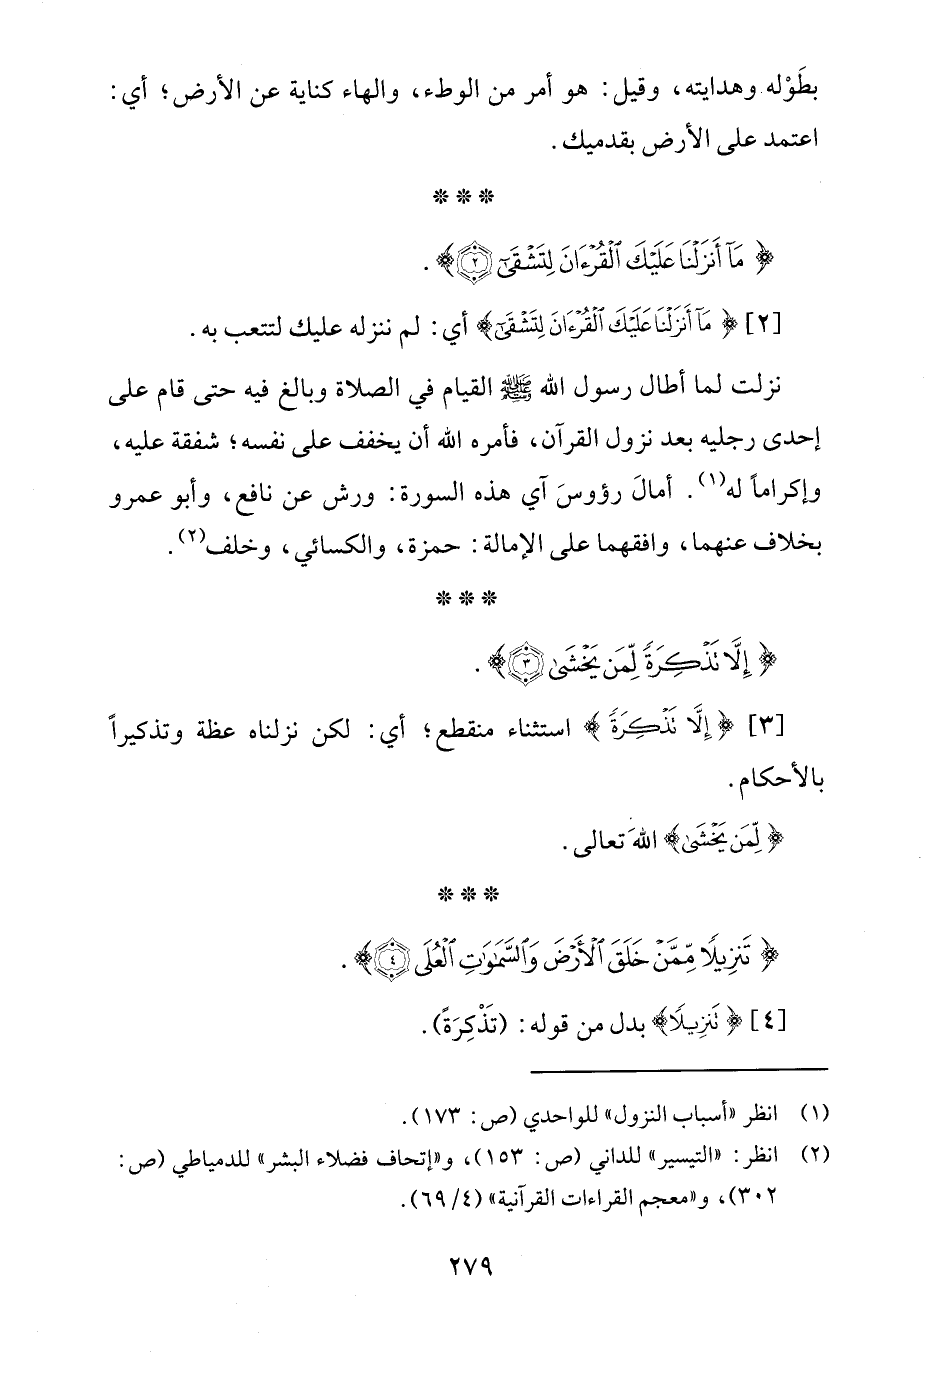 بطَوْله وهدايته، وقيل: هو أمر من الوطء، والهاء كناية عن الأرض؛ أي:
اعتمد على الأرض بقدميك.
***
﴿مَآ أَنزَلْنَا عَلَيْكَ ٱلْقُرْءَانَ لِتَشْقَىٰٓ ٢﴾.
[٢] ﴿مَآ أَنزَلْنَا عَلَيْكَ ٱلْقُرْءَانَ لِتَشْقَىٰٓ﴾ أي: لم ننزله عليك لتتعب به.
نزلت لما أطال رسول الله ﷺ القيام في الصلاة وبالغ فيه حتى قام على
إحدى رجليه بعد نزول القرآن، فأمره الله أن يخفف على نفسه؛ شفقة عليه،
وإكراماً له(١). أمالَ رؤوسَ آي هذه السورة: ورش عن نافع، وأبو عمرو
بخلاف عنهما، وافقهما على الإمالة: حمزة، والكسائي، وخلف(٢).
***
﴿إِلَّا تَذْكِرَةً لِّمَن يَخْشَىٰ ٣﴾.
[٣] ﴿إِلَّا تَذْكِرَةً﴾ استثناء منقطع؛ أي: لكن نزلناه عظة وتذكيراً
بالأحكام.
﴿لِّمَن يَخْشَىٰ﴾ اللهَ تعالى.
***
﴿تَنزِيلًا مِّمَّنْ خَلَقَ ٱلْأَرْضَ وَٱلسَّمَٰوَٰتِ ٱلْعُلَى ٤﴾.
[٤] ﴿تَنزِيلًا﴾ بدل من قوله: (تَذْكِرَةً).
(١) انظر «أسباب النزول» للواحدي (ص: ١٧٣).
(٢) انظر: «التيسير» للداني (ص: ١٥٣)، و«إتحاف فضلاء البشر» للدمياطي (ص:
٣٠٢)، و«معجم القراءات القرآنية» (٤/ ٦٩).
٢٧٩